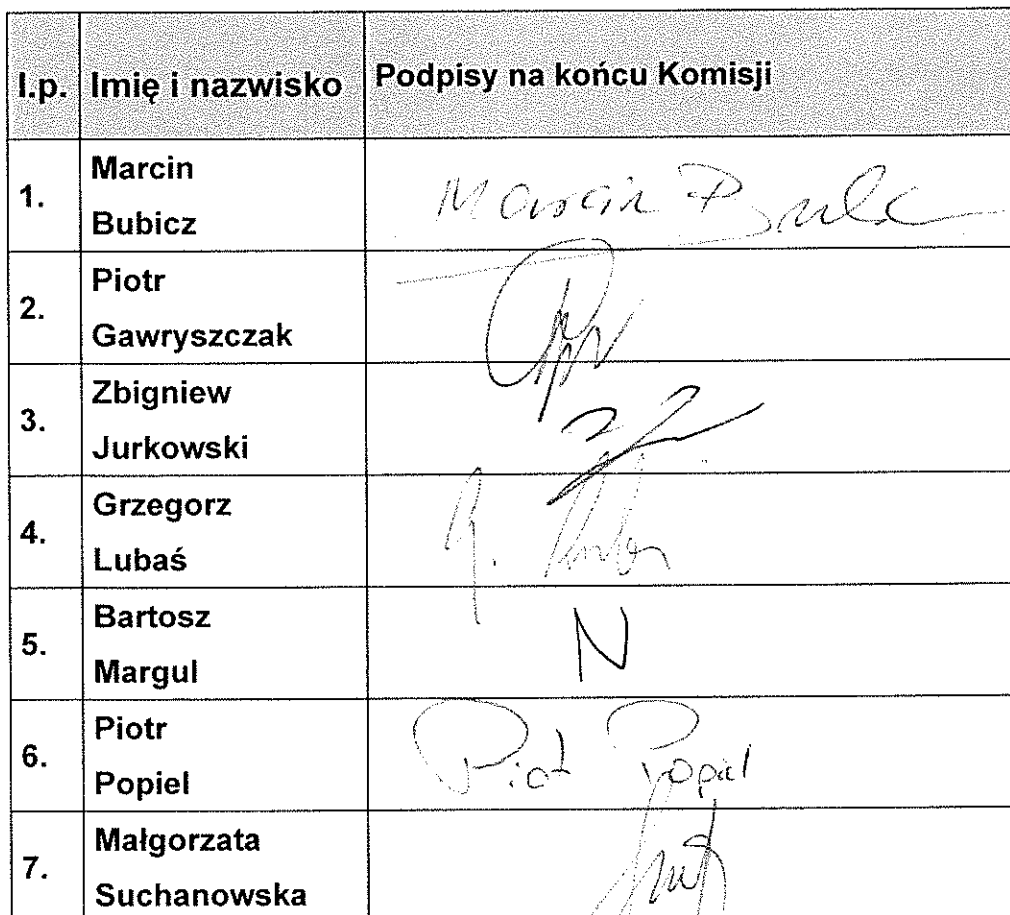 l.p. Imię i nazwisko Podpisy na końcu Komisji
1. Marcin
Bubicz
Marcin
2. Piotr
Gawryszczak
3. Zbigniew
Jurkowski
4. Grzegorz
Lubaś
5. Bartosz
Margul
N
6. Piotr
Popiel
Piotr Popiel
7. Małgorzata
Suchanowska